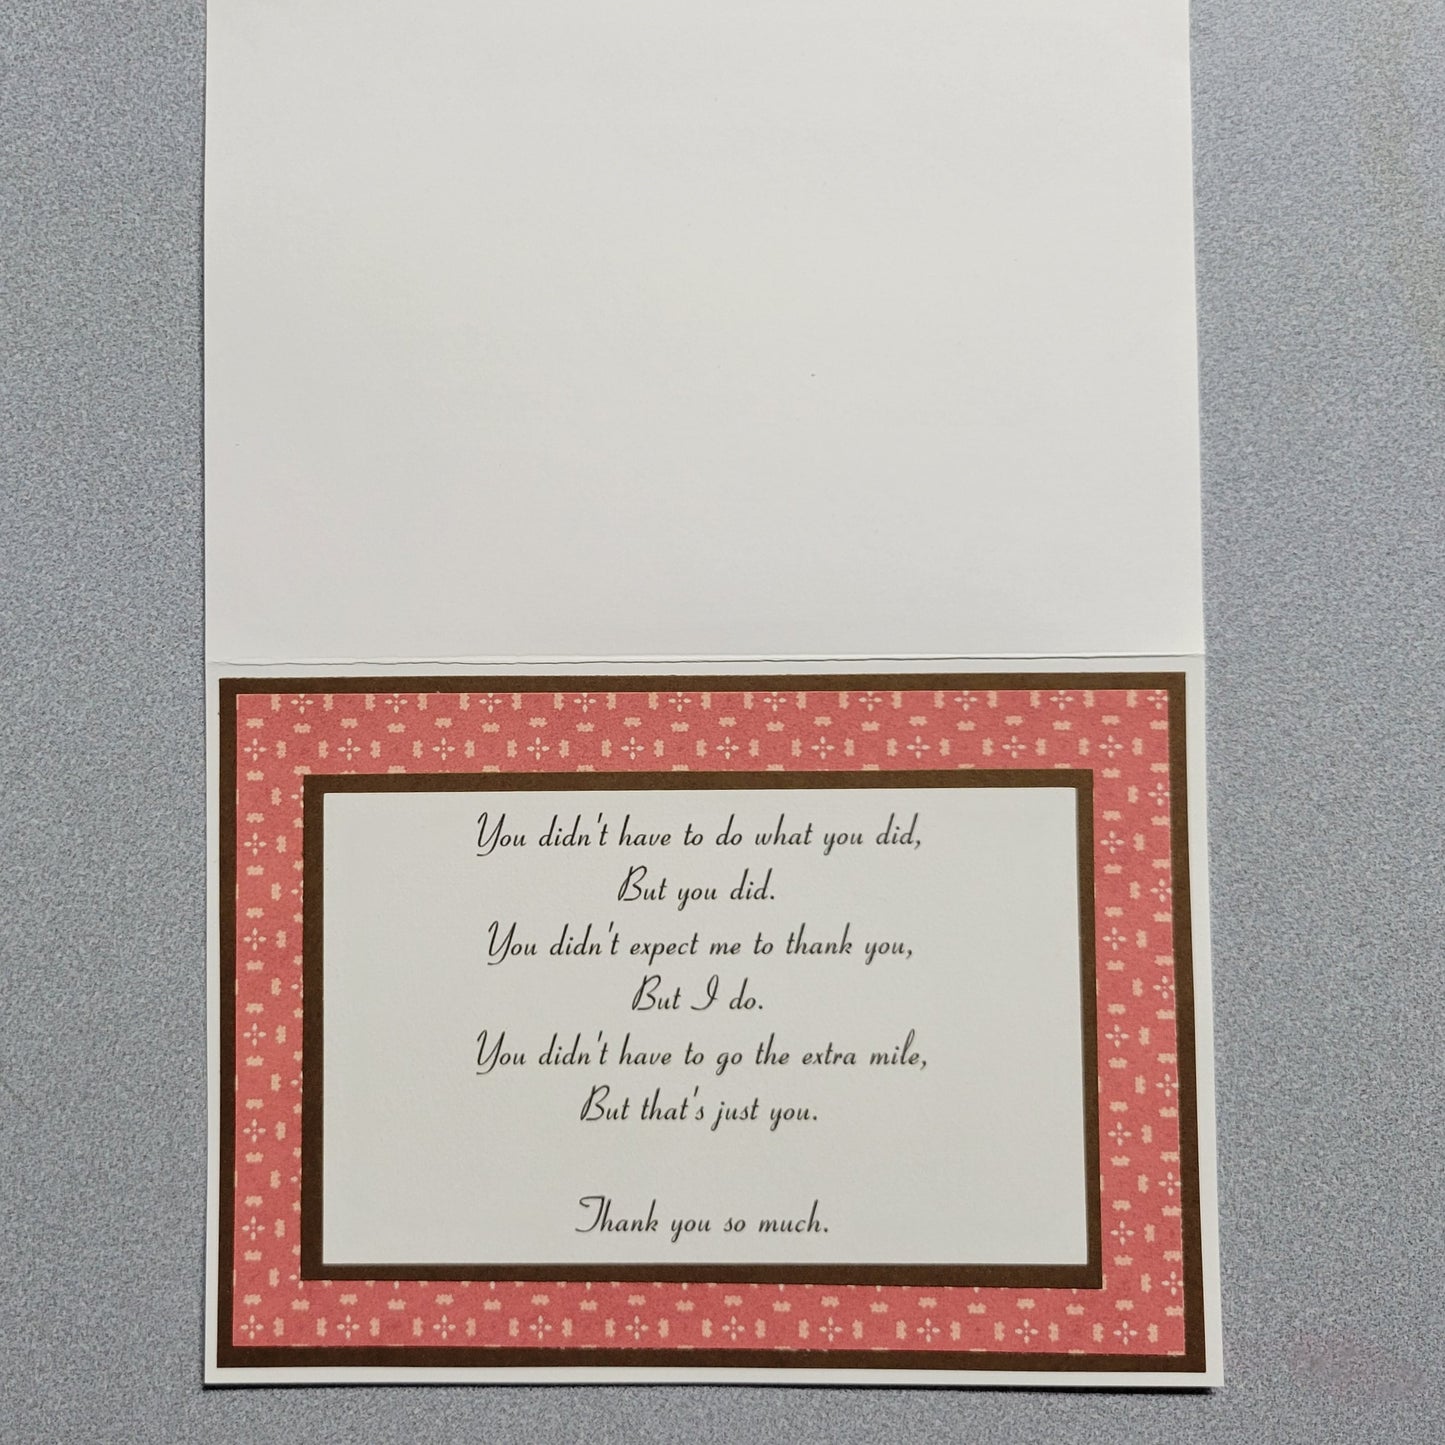 You didn't have to do what you did,
But you did.
You didn't expect me to thank you,
But I do.
You didn't have to go the extra mile,
But that's just you.
Thank you so much.